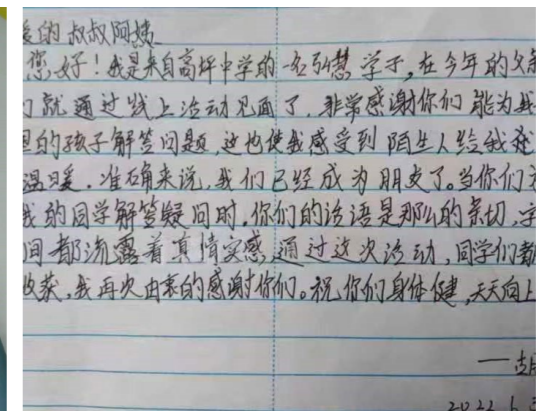 的叔叔阿姨
您好！我是来自高坪中学的一名学子，在今年的父亲
们就通过线上活动见面了，非常感谢你们能为我
的孩子解答问题，这也使我感受到陌生人给我
温暖．准确来说，我们已经成为朋友了。当你们
我的同学解答疑问时，你们的话语是那么的亲切，字
间都流露着真情实感，通过这次活动，同学们都
收获，我再次由衷的感谢你们。祝你们身体健，天天向上
——胡
2022.6.